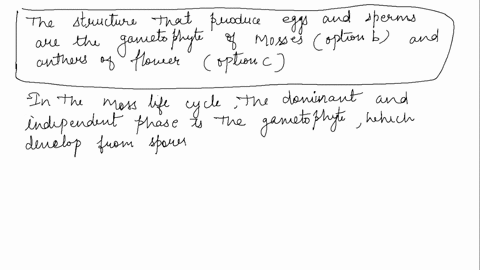 The structure that produce eggs and sperms
are the gametophyte of Mosses (option b) and
anthers of flower (option C)
In the moss life cycle, the dominant and
independent phase is the gametophyte, which
develop from spores